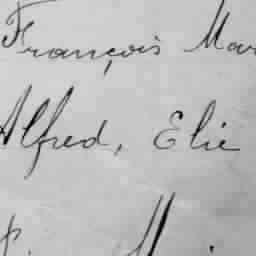 François Mar
Alfred, Elie